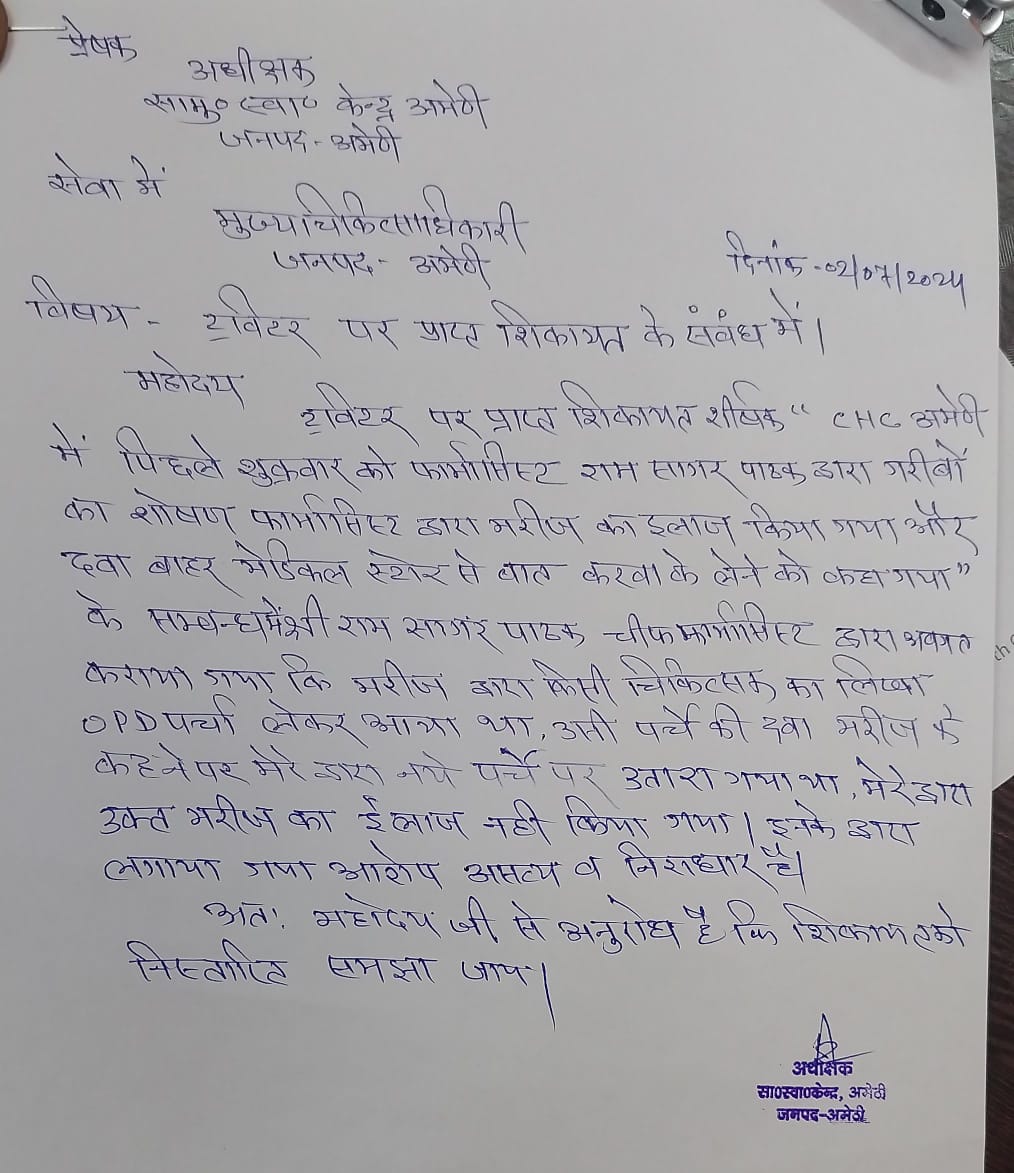 प्रेषक
अधीक्षक
सामु० स्वा० केन्द्र अमेठी
जनपद - अमेठी
सेवा में
मुख्य चिकित्साधिकारी
जनपद - अमेठी
दिनांक - 02/07/2024
विषय - ट्विटर पर प्राप्त शिकायत के संबंध में।
महोदय
ट्विटर पर प्राप्त शिकायत शीर्षक " CHC अमेठी
में पिछले शुक्रवार को फार्मासिस्ट राम सागर पाठक द्वारा गरीबों
का शोषण फार्मासिस्ट द्वारा मरीज का इलाज किया गया और
दवा बाहर मेडिकल स्टोर से बात करवा के लेने को कहा गया"
के सम्बन्ध में श्री राम सागर पाठक चीफ फार्मासिस्ट द्वारा अवगत
कराया गया कि मरीज द्वारा किसी चिकित्सक का लिखा
OPD पर्चा लेकर आया था, उसी पर्चे की दवा मरीज के
कहने पर मेरे द्वारा नये पर्चे पर उतारा गया था, मेरे द्वारा
उक्त मरीज का ईलाज नही किया गया। इनके द्वारा
लगाया गया आरोप असत्य व निराधार है।
अतः महोदय जी से अनुरोध है कि शिकायत को
निस्तारित समझा जाय।
अधीक्षक
सा०स्वा०केन्द्र, अमेठी
जनपद-अमेठी